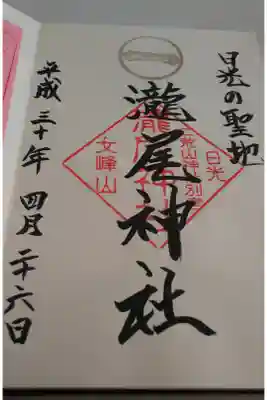 日光の聖地
瀧尾神社
日光
二荒山神社別宮
瀧尾神社
女峰山
平成三十年四月二十六日